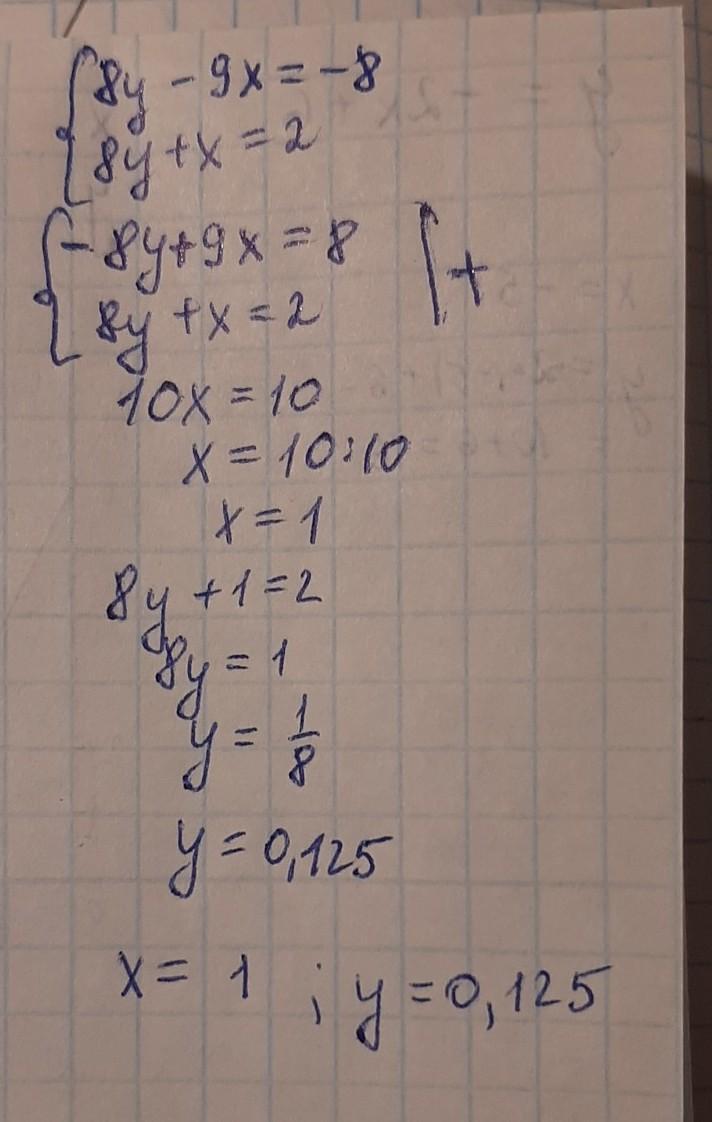 8y - 9x = -8
8y + x = 2
- 8y + 9x = 8 | +
8y + x = 2
10x = 10
x = 10:10
x = 1
8y + 1 = 2
8y = 1
y = 1/8
y = 0,125
x = 1 ; y = 0,125